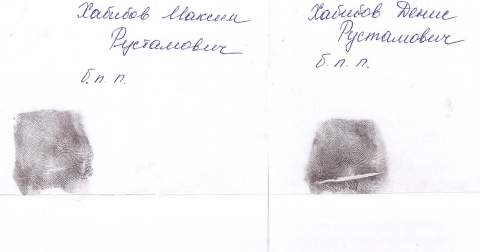 Хабибов Максим
Рустамович
б.п.п.
Хабибов Денис
Рустамович
б.п.п.